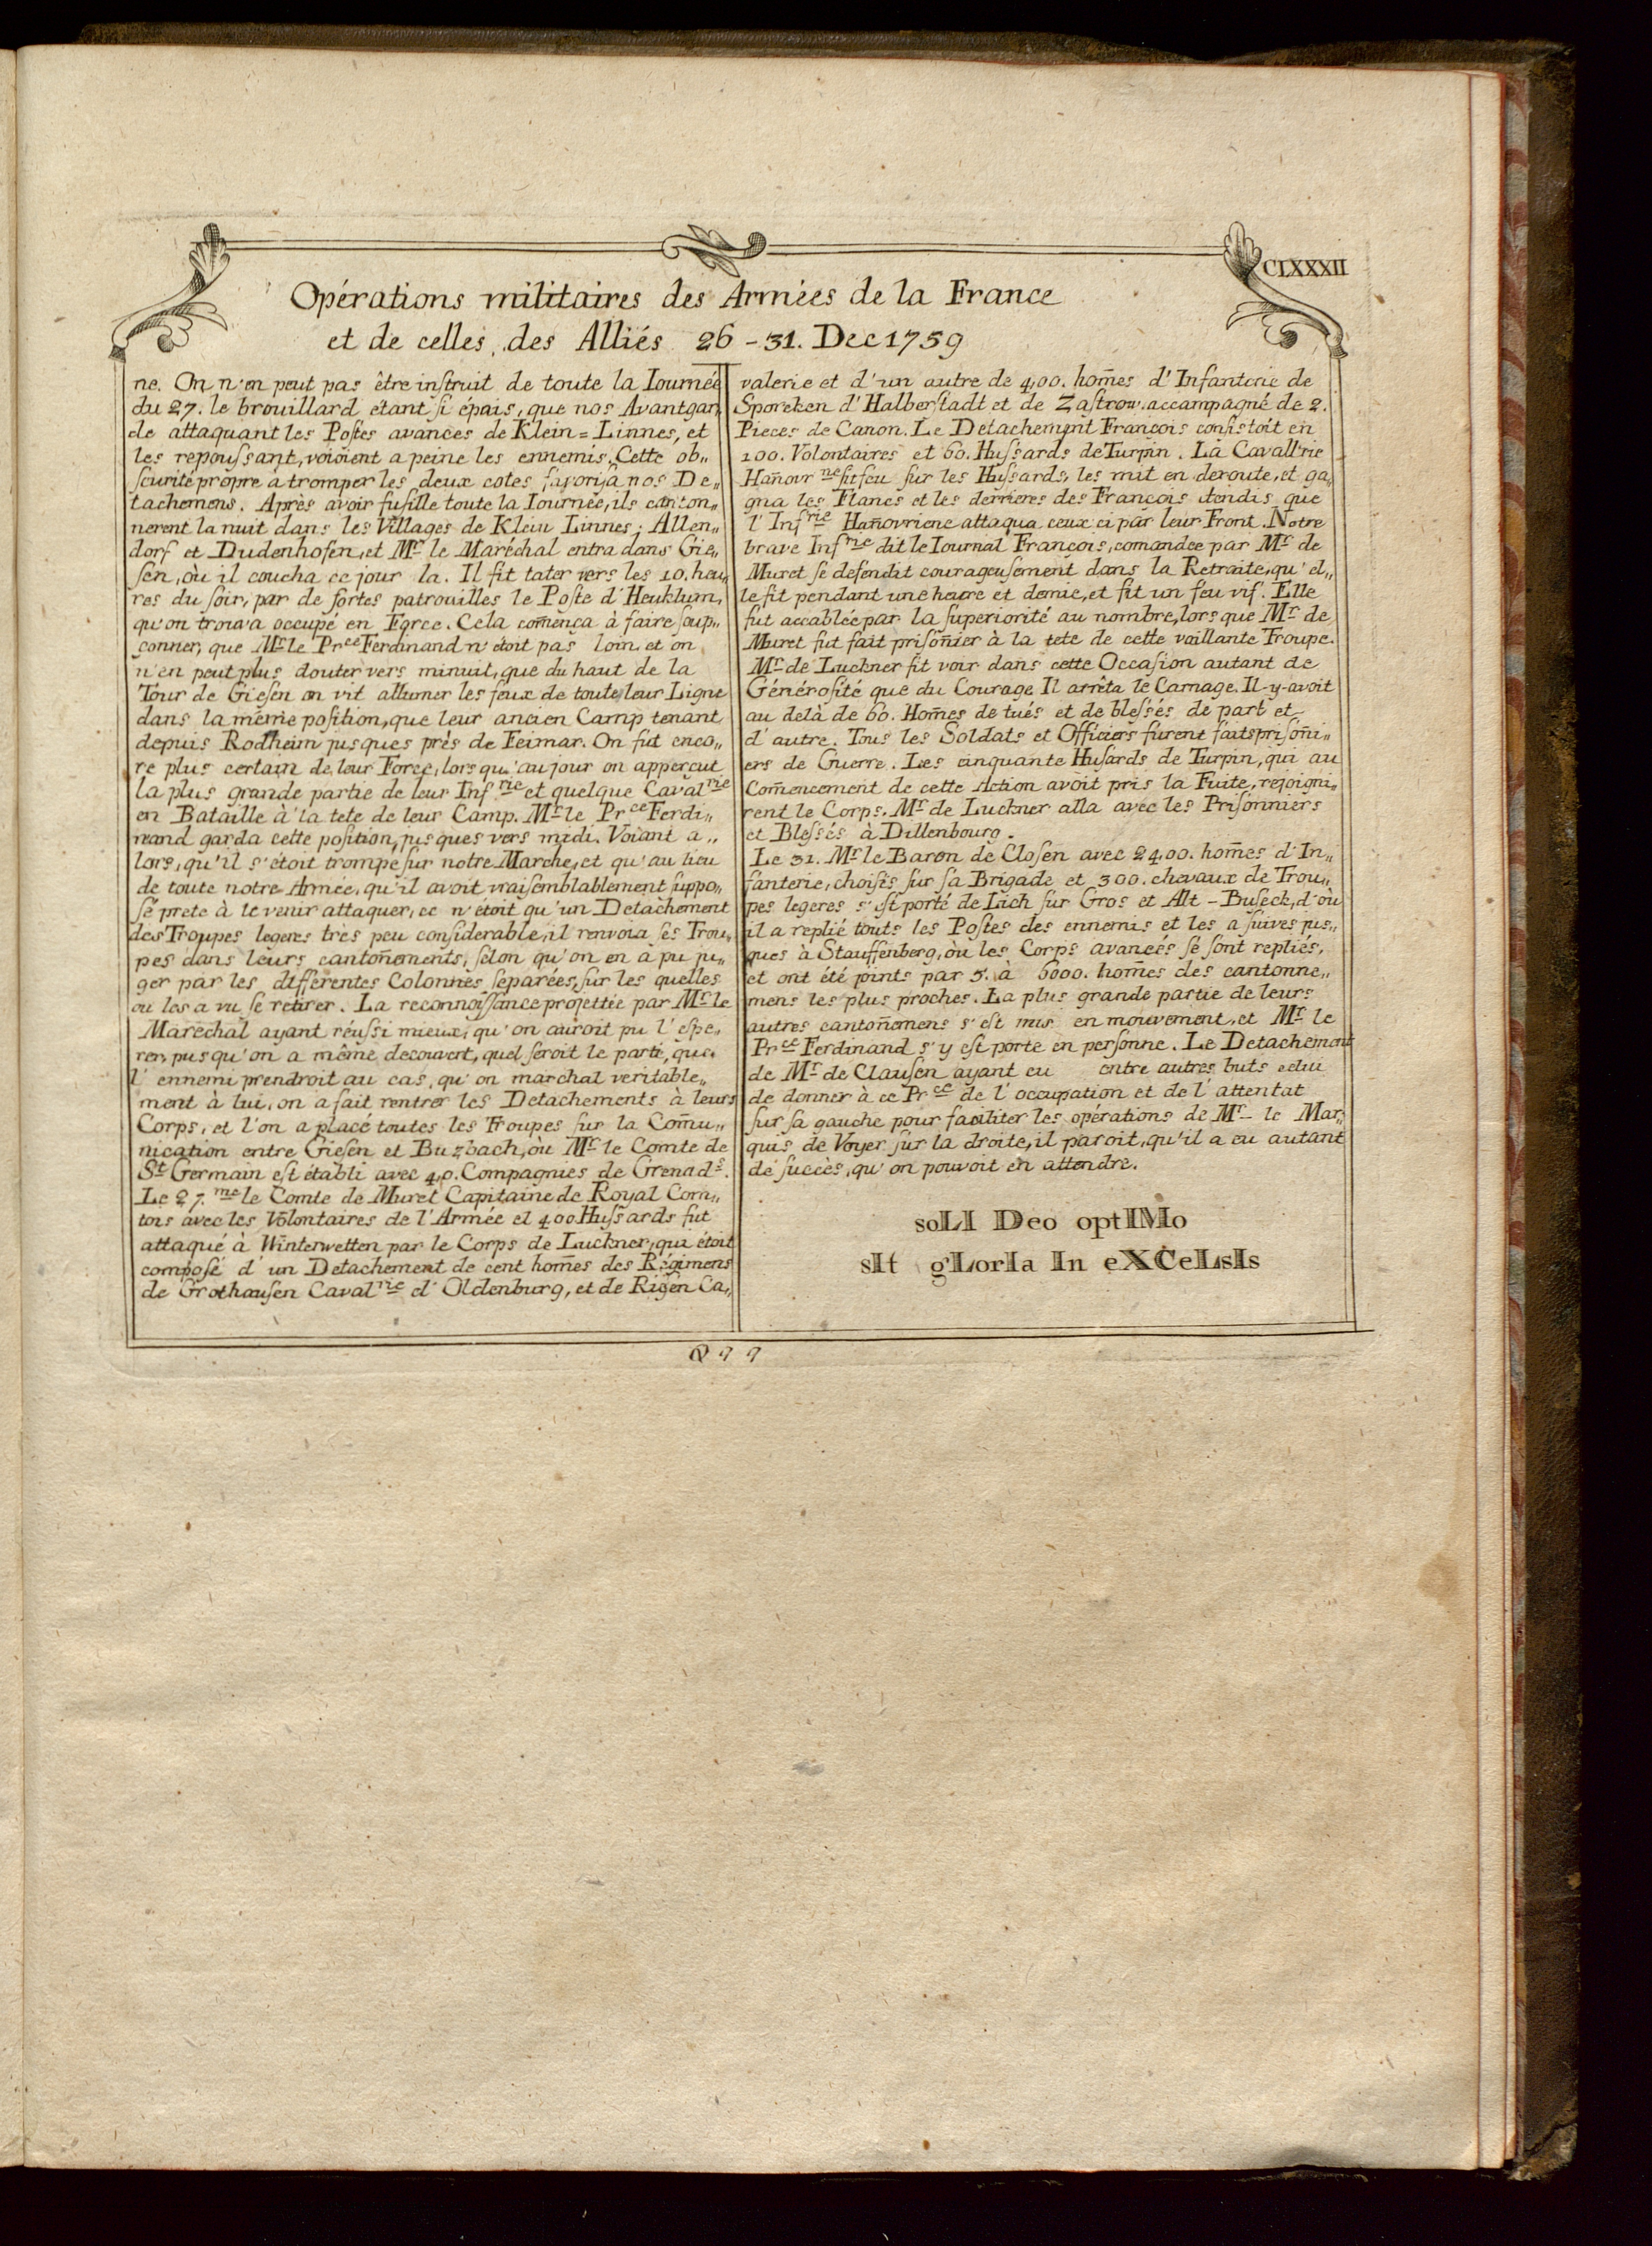 CLXXXII
Opérations militaires des Armées de la France
et de celles des Alliés 26 - 31. Dec 1759
ne. On n'en peut pas être inſtruit de toute la Iournée
du 27. le brouillard étant ſi épais, que nos Avantgar„
de attaquant les Poſtes avancés de Klein=Linnes, et
les repouſsant, voioient a peine les ennemis. Cette ob„
ſcurité propre à tromper les deux cotes favoriſa nos De„
tachemens. Après avoir fuſille toute la Iournée, ils canton„
nerent la nuit dans les Villages de Klein Linnes, Allen„
dorf et Dudenhofen, et Mr le Maréchal entra dans Gie„
ſen, où il coucha ce jour la. Il fit tater vers les 10. heu„
res du ſoir, par de fortes patrouilles le Poſte d'Heuklum,
qu'on trouva occupé en Force. Cela com̄ença à faire ſoup„
conner, que Mr le Prce Ferdinand n'étoit pas loin, et on
n'en peut plus douter vers minuit, que du haut de la
Tour de Gieſen on vit allumer les feux de toute leur Ligne
dans la même poſition, que leur ancien Camp tenant
depuis Rodheim jusques près de Feimar. On fut enco„
re plus certain de leur Force, lors qu'au jour on apperçut
la plus grande partie de leur Infrie et quelque Cavalrie
en Bataille à la tete de leur Camp. Mr le Prce Ferdi„
nand garda cette poſition, jusques vers midi. Voiant a„
lors, qu'il s'étoit trompé ſur notre Marche, et qu'au lieu
de toute notre Armée, qu'il avoit vraiſemblablement ſuppo„
ſé prete à le venir attaquer, ce n'étoit qu'un Detachement
des Troupes legeres très peu conſiderable, il renvoia ſes Trou„
pes dans leurs canton̄ements, ſelon qu'on en a pu ju„
ger par les differentes Colonnes ſeparées, ſur les quelles
on les a vu ſe retirer. La reconnoiſsance projettée par Mr le
Maréchal ayant réuſsi mieux, qu'on auroit pu l'eſpe„
rer, pusqu'on a même decouvert, quel ſeroit le parti, que
l'ennemi prendroit au cas, qu'on marchal veritable„
ment à lui, on a fait rentrer les Detachements à leurs
Corps, et l'on a placé toutes les Troupes ſur la Com̄u„
nication entre Gieſen et Buzbach, où Mr le Comte de
St Germain eſt établi avec 40. Compagnies de Grenads.
Le 27.me le Comte de Muret Capitaine de Royal Com„
tois avec les Volontaires de l'Armée et 400 Huſsards fut
attaqué à Winterwetten par le Corps de Luckner, qui étoit
compoſé d'un Detachement de cent hom̄es des Régimens
de Grothauſen Cavalrie d'Oldenburg, et de Rigen Ca„
valerie et d'un autre de 400. hom̄es d'Infanterie de
Sporeken d'Halberſtadt et de Zaſtrow. accampagné de 2.
Pieces de Canon. Le Detachement François conſiſtoit en
100. Volontaires et 60. Huſsards de Turpin. La Cavall'rie
Han̄ovrne fit feu ſur les Huſsards, les mit en deroute, et ga„
gna les Flancs et les derrieres des François tendis que
l'Infrie Han̄ovriene attaqua ceux ci par leur Front. Notre
brave Infrie dit le Iournal François, comandee par Mr de
Muret ſe defendit courageuſement dans la Retraite, qu'el„
le fit pendant une heure et demie, et fit un feu vif. Elle
fut accablée par la ſuperiorité au nombre, lors que Mr de
Muret fut fait priſon̄ier à la tete de cette vaillante Troupe.
Mr de Luckner fit voir dans cette Occaſion autant de
Généroſité que du Courage. Il arrêta le Carnage. Il-y-avoit
au delà de 60. Hom̄es de tués et de bleſsés de part et
d'autre. Tous les Soldats et Officiers furent faits priſon̄i„
ers de Guerre. Les cinquante Huſards de Turpin, qui au
Com̄encement de cette Action avoit pris la Fuite, rejoigni„
rent le Corps. Mr de Luckner alla avec les Priſonniers
et Bleſsés à Dillenbourg.
Le 31. Mr le Baron de Cloſen avec 2400. hom̄es d'In„
fanterie, choiſis ſur ſa Brigade et 300. chevaux de Trou„
pes legeres s'eſt porté de Lich ſur Gros et Alt-Buſeck, d'où
il a replié touts les Poſtes des ennemis et les a ſuives jus„
ques à Stauffenberg, où les Corps avancés ſe ſont repliés,
et ont été joints par 5. à 6000. hom̄es des cantonne„
mens les plus proches. La plus grande partie de leurs
autres canton̄emens s'eſt mis en mouvement, et Mr le
Prce Ferdinand s'y eſt porte en perſonne. Le Detachement
de Mr de Clauſen ayant eu entre autres buts celui
de donner à ce Prce de l'occupation et de l'attentat
ſur ſa gauche pour faciliter les opérations de Mr le Mar„
quis de Voyer ſur la droite, il paroit, qu'il a eu autant
de ſuccès, qu'on pouvoit en attendre.
soLI Deo optIMo
sIt gLorIa In eXCeLsIs